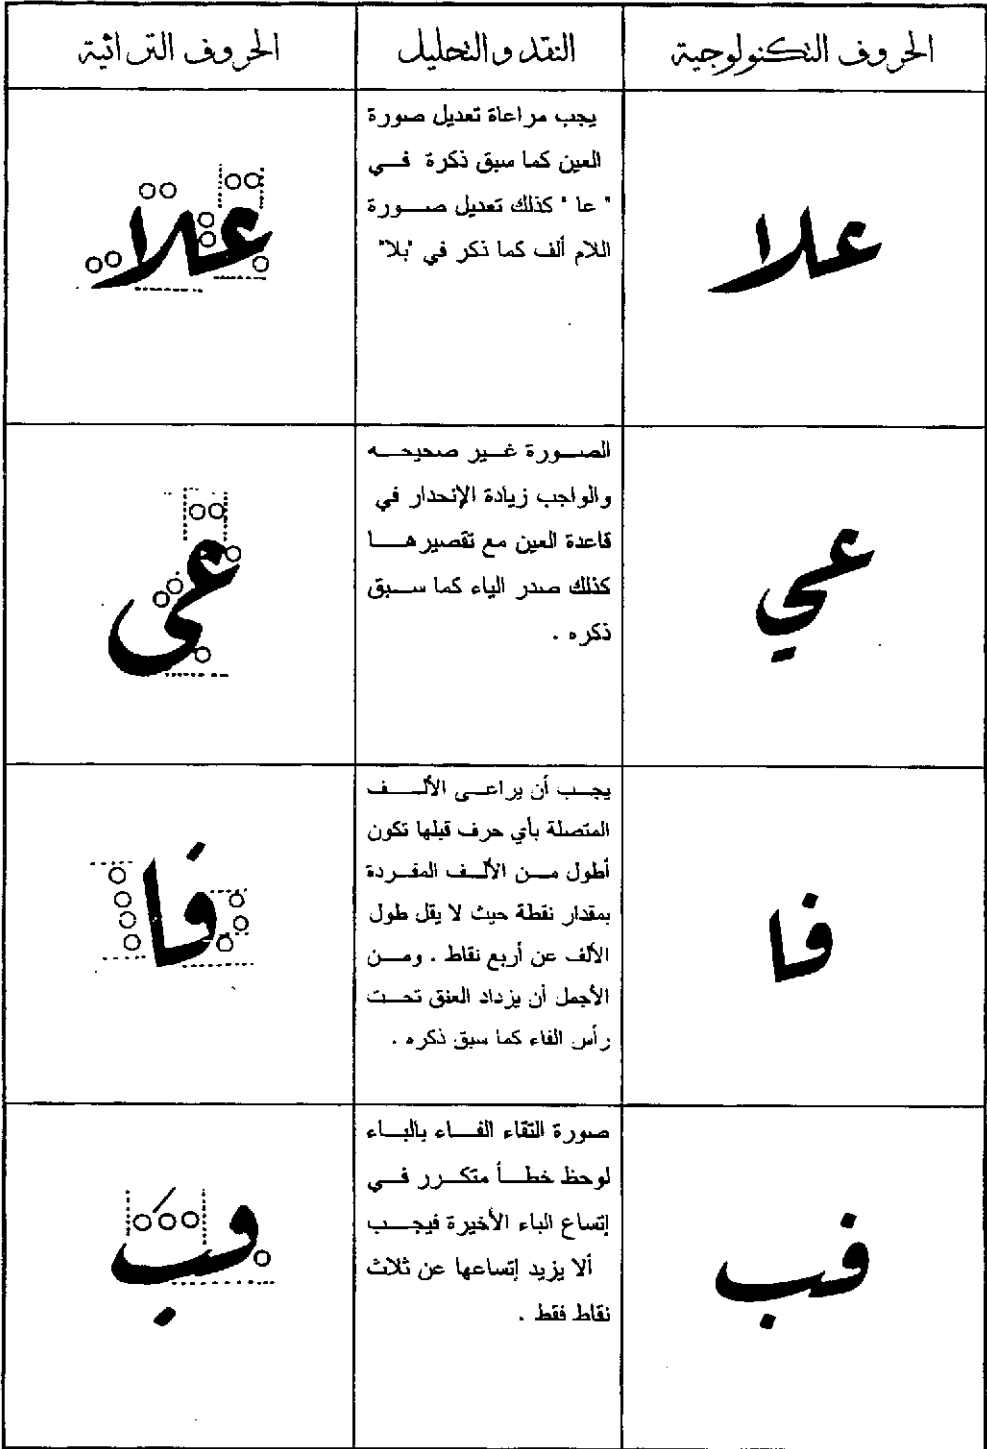 الحروف التكنولوجية
النقد والتحليل
الحروف التراثية
علا
يجب مراعاة تعديل صورة
العين كما سبق ذكرة في
" عا " كذلك تعديل صورة
اللام ألف كما ذكر في "بلا"
علا
عي
الصورة غير صحيحه
والواجب زيادة الإنحدار في
قاعدة العين مع تقصيرها
كذلك صدر الياء كما سبق
ذكره .
عى
فا
يجب أن يراعى الألف
المتصلة بأي حرف قبلها تكون
أطول من الألف المفردة
بمقدار نقطة حيث لا يقل طول
الألف عن أربع نقاط . ومن
الأجمل أن يزداد العنق تحت
رأس الفاء كما سبق ذكره .
فا
فب
صورة التقاء الفاء بالباء
لوحظ خطأ متكرر في
إتساع الباء الأخيرة فيجب
ألا يزيد إتساعها عن ثلاث
نقاط فقط .
فب